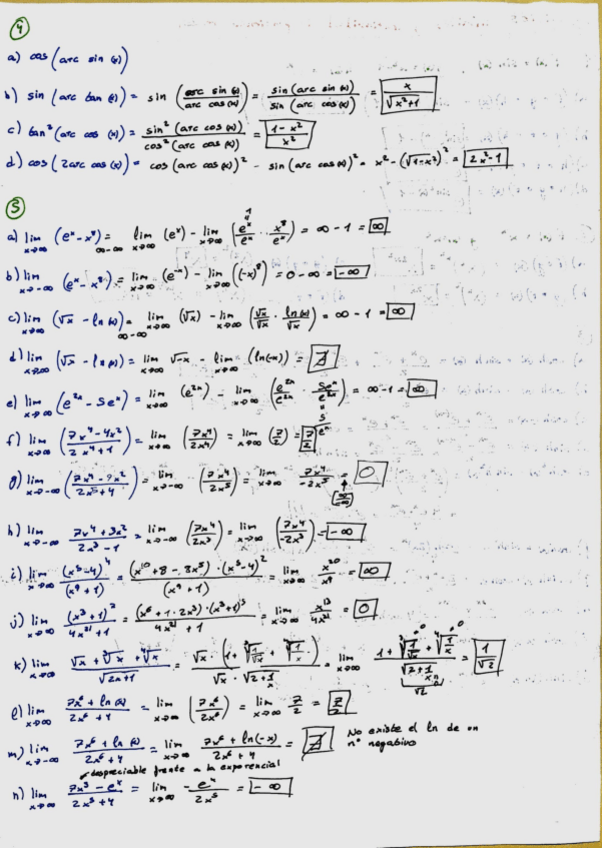 4
a) cos (arc sin (x))
b) sin (arc tan (x)) = sin (arc sin (x) / arc cos (x)) = sin (arc sin (x)) / sin (arc cos (x)) = x / √(x²+1)
c) tan² (arc cos (x)) = sin² (arc cos (x)) / cos² (arc cos (x)) = (1 - x²) / x²
d) cos (2arc cos (x)) = cos (arc cos (x))² - sin (arc cos (x))² = x² - (√(1-x²))² = 2x²-1
5
a) lim x→∞ (eˣ - x⁸) = ∞-∞ lim x→∞ (eˣ) - lim x→∞ (eˣ/eˣ · x⁸/eˣ) = ∞ - 1 = ∞
b) lim x→-∞ (eˣ - x⁸) = lim x→∞ (e⁻ˣ) - lim x→∞ ((-x)⁸) = 0 - ∞ = -∞
c) lim x→∞ (√x - ln(x)) = ∞-∞ lim x→∞ (√x) - lim x→∞ (√x/√x · ln(x)/√x) = ∞ - 1 = ∞
d) lim (√x - ln(x)) = lim x→∞ √-x - lim x→∞ (ln(-x)) = ∄
e) lim x→∞ (e²ˣ - 5eˣ) = lim x→∞ (e²ˣ) - lim x→∞ (e²ˣ/e²ˣ · 5eˣ/e²ˣ) = ∞ - 1 = ∞
= 5/eˣ
f) lim x→∞ ((7x⁴ - 4x²) / (2x⁴ + 1)) = lim x→∞ (7x⁴/2x⁴) = lim x→∞ (7/2) = 7/2
g) lim x→-∞ ((7x⁴ - x²) / (2x⁵ + 4)) = lim x→-∞ (7x⁴/2x⁵) = lim x→∞ 7x⁴/-2x⁵ = 0
h) lim x→-∞ (7x⁴ + 3x²) / (2x³ - 1) = lim x→-∞ (7x⁴/2x³) = lim x→∞ (7x⁴/-2x³) = -∞
i) lim x→∞ (x⁵ - 4)⁴ / (x⁹ + 1) = (x¹⁰ + 8 - 8x⁵) · (x⁵ - 4)² / (x⁹ + 1) = lim x→∞ x²⁰/x⁹ = ∞
j) lim x→∞ (x³ + 1)² / (4x²¹ + 1) = (x⁶ + 1 · 2x³) · (x³ + 1)³ / (4x²¹ + 1) = lim x→∞ x¹³/4x²¹ = 0
k) lim x→∞ (√x + ∛x + ∜x) / √(2x+1) = √x · (1 + √(1/√x) + √(1/x)) / (√x · √(2+1/x)) = lim x→∞ (1 + √(1/√x) + √(1/x)) / √(2+1/x) = 1/√2
√2
l) lim x→∞ (7x⁶ + ln(x)) / (2x⁶ + 1) = lim x→∞ (7x⁶/2x⁶) = lim x→∞ 7/2 = 7/2
m) lim x→-∞ (7x⁶ + ln(x)) / (2x⁶ + 4) = lim x→∞ (7x⁶ + ln(-x)) / (2x⁶ + 4) = ∄ No existe el ln de un
nº negativo
despreciable frente a la exponencial
n) lim x→∞ (7x³ - eˣ) / (2x⁵ + 4) = lim x→∞ - eˣ/2x⁵ = -∞